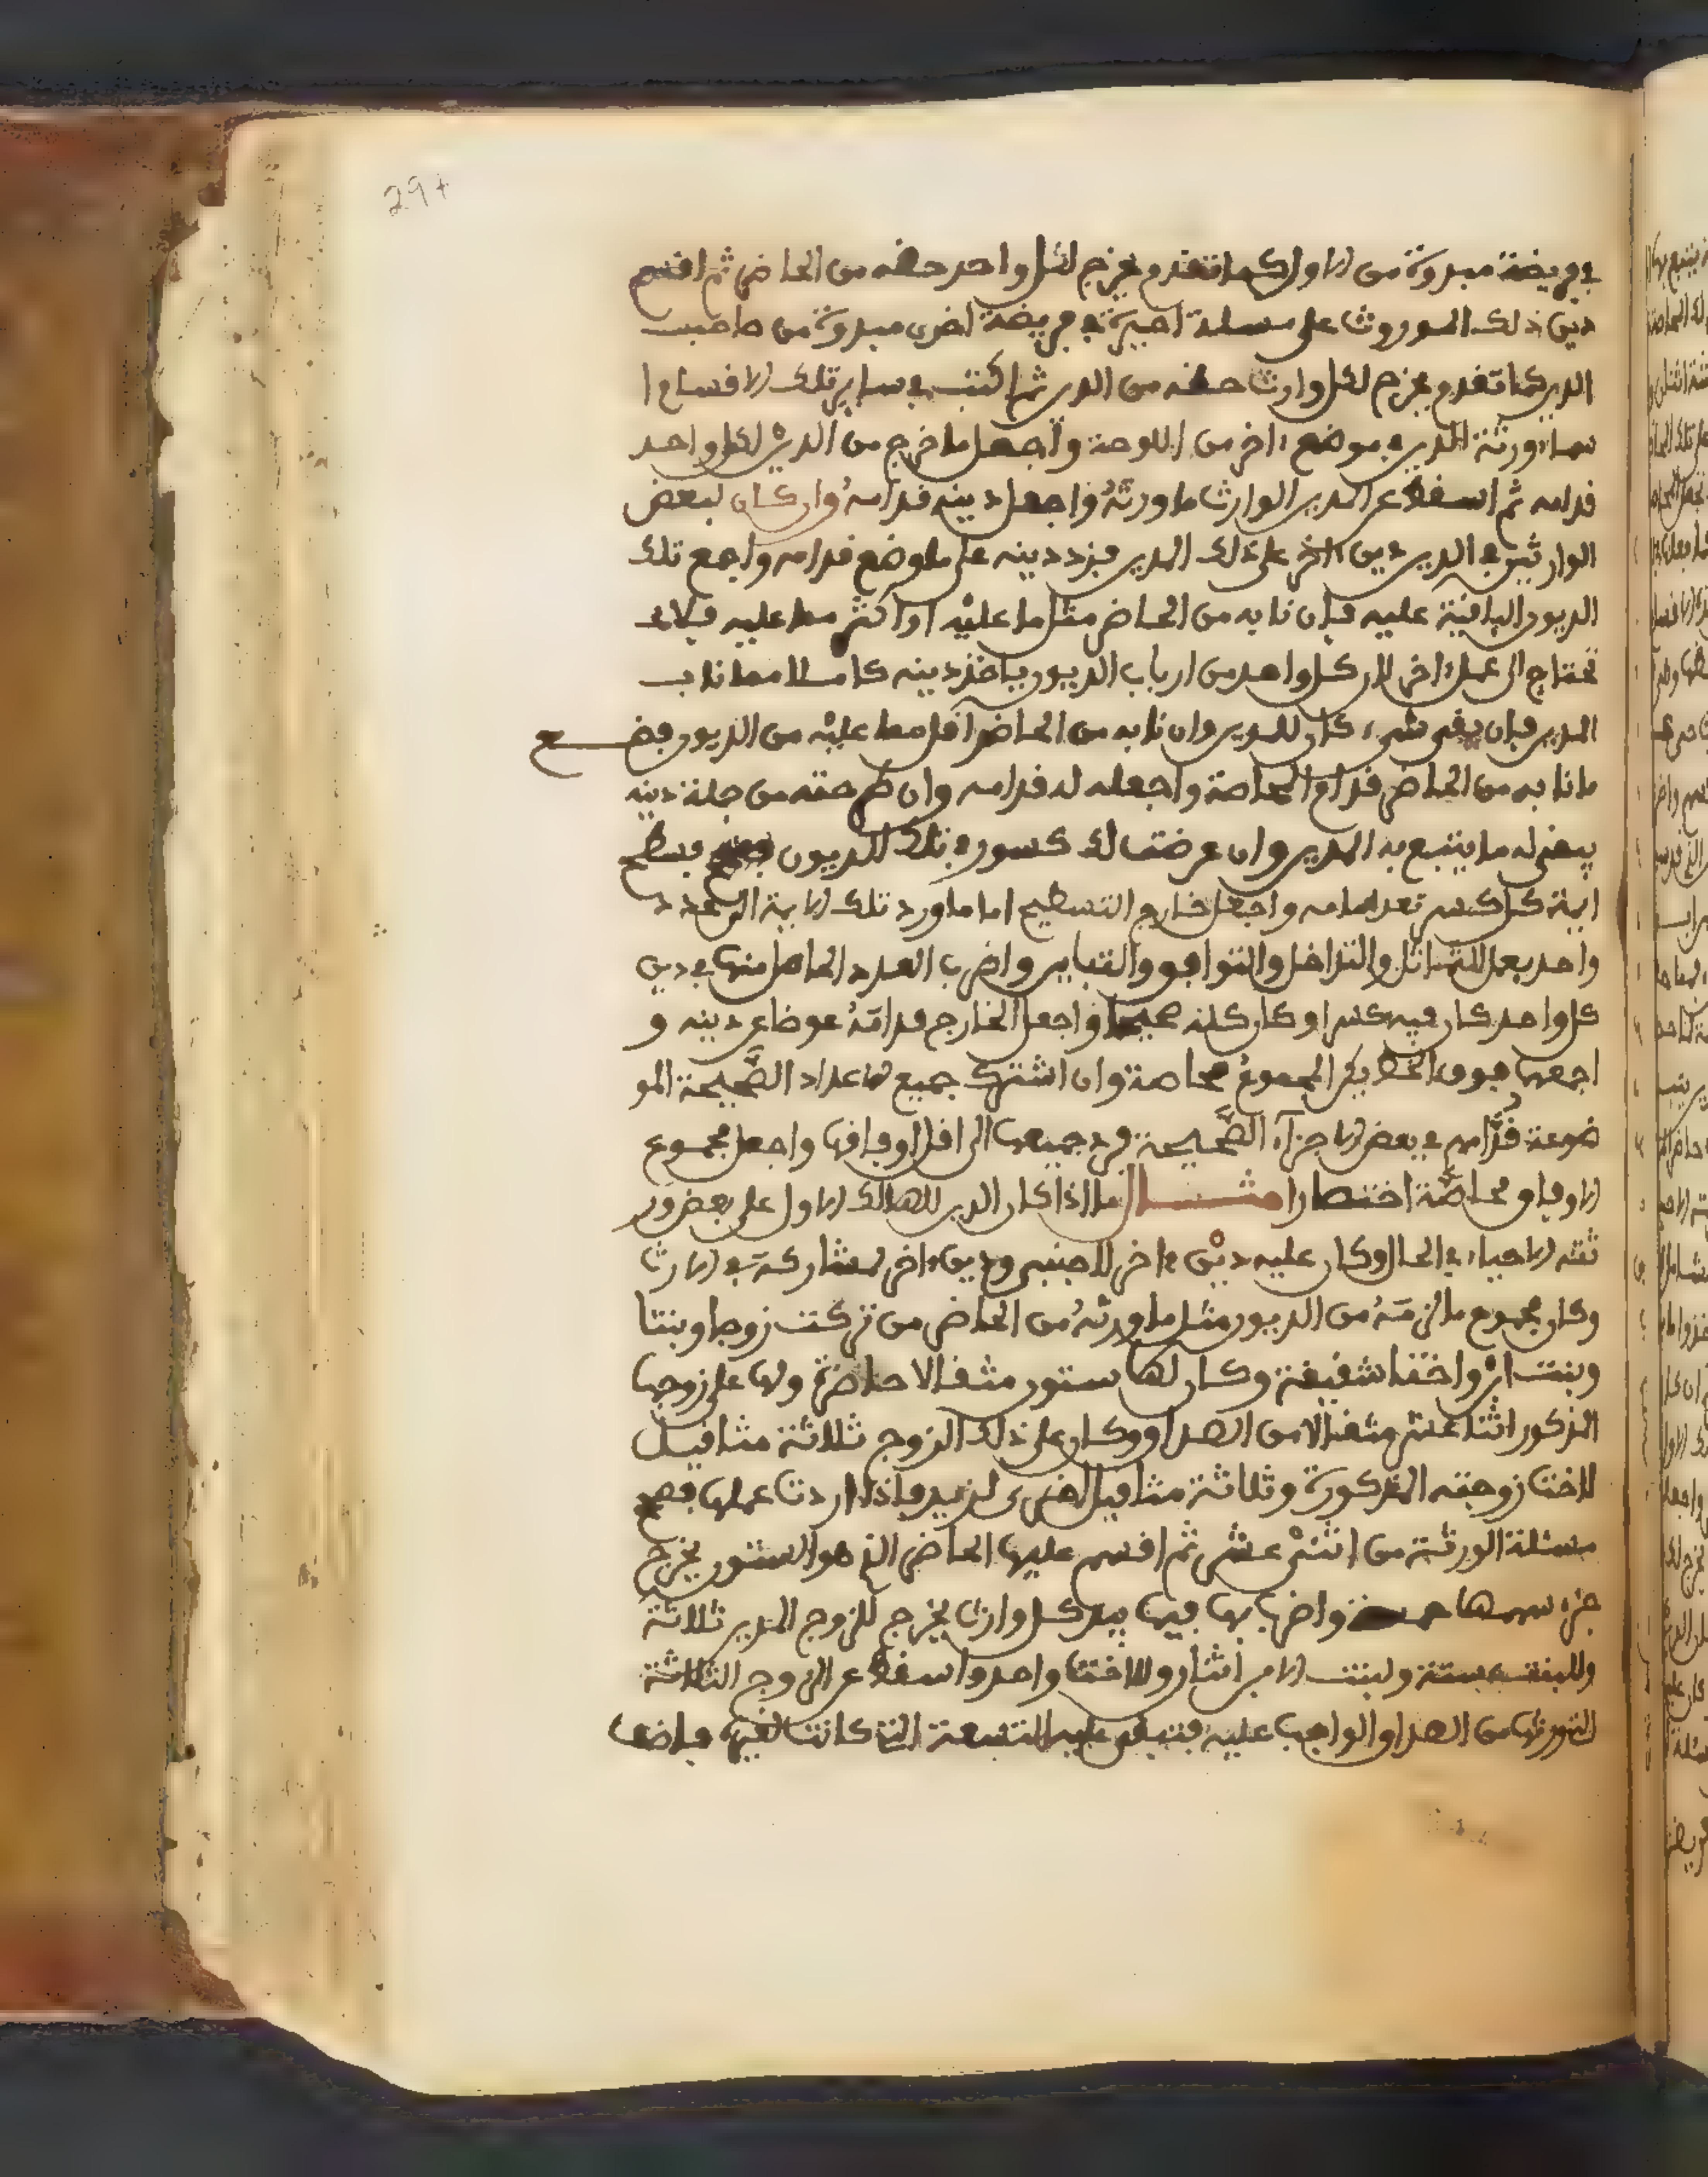 29+
في فريضة مبدوة من الاول كما تقدم يخرج لكل واحد حظه من الحاضر ثم اقسم
دين ذلك الموروث على مسئلة اخيرة في فريضة اخرى مبدوة من صاحب
الدين كما تقدم يخرج لكل وارث حظه من الدين ثم اكتب في سائر تلك الاقسام ا
سماء ورثة المدين في موضع ءاخر من اللوحة واجعل ما خرج من الدين لكل واحد
قدامه ثم اسقط عن المدين الوارث ما ورثه واجعل دينه قدامه وان كان لبعض
الوارثين في الدين دين ءاخر على ذلك المدين فزد دينه على ما وضع قدامه واجمع تلك
الديون الباقية عليه فان نابه من الحاضر مثل ما عليه او اكثر مما عليه فلا
تحتاج الى عمل ءاخر لان كل واحد من ارباب الديون ياخذ دينه كاملا مما ناب
المدين فان بقي شيء كان للمدين وان نابه من الحاضر اقل مما عليه من الديون فضع
ما نابه من الحاضر قدام المحاصة واجعله له قدامه وان طرحته من جملة دينه
يبقى له ما يتبع به المدين وان عرضت لك كسور في تلك الديون فسطح
ايمة كل كسر تعد امامه واجعل خارج التسطيح امام ما ورد تلك الايمة الى عدد
واحد بعمل التماثل والتداخل والتوافق والتباين واضرب العدد الحاصل منها في دين
كل واحد كان فيه كسر او كان كله صحيحا واجعل الخارج قدامه عوضا عن دينه و
اجمعها فوق الخط يكن المجموع محاصة وان اشترك جميع الاعداد الصحيحة المو
ضوعة قدامهم في بعض الاجزاء الصحيحة فرد جميعها الى اقل اوفاقها واجعل مجموع
الاوفاق محاصة اختصارا مثال ما اذا كان الدين للهالك الاول على بعض ور
ثته الاحياء في الحال وكان عليه دين ءاخر لاجنبي ودين ءاخر لمشاركه في الارث
وكان مجموع ما لزمه من الديون مثل ما ورثه من الحاضر من تركت زوجا وبنتا
وبنت ابن واختا شقيقة وكان لها ستون مثقالا حاضرة ولها على زوجها
المذكور اثنا عشر مثقالا من الصداق وكان على ذلك الزوج ثلاثة مثاقيل
لاخت زوجته المذكورة وثلاثة مثاقيل اخرى لزيد فاذا اردت عملها فصحح
مسئلة الورثة من اثني عشر ثم اقسم عليها الحاضر الذي هو الستون يخرج
جزء سهمها خمسة واضرب بها فيما بيد كل وارث يخرج للزوج المدين ثلاثة
وللبنت ستة ولبنت الابن اثنان وللاخت واحد واسقط عن الزوج الثلاثة
التي ورثها من الصداق الواجب عليه فتبقى عليه التسعة التي كانت لغيره فاضف